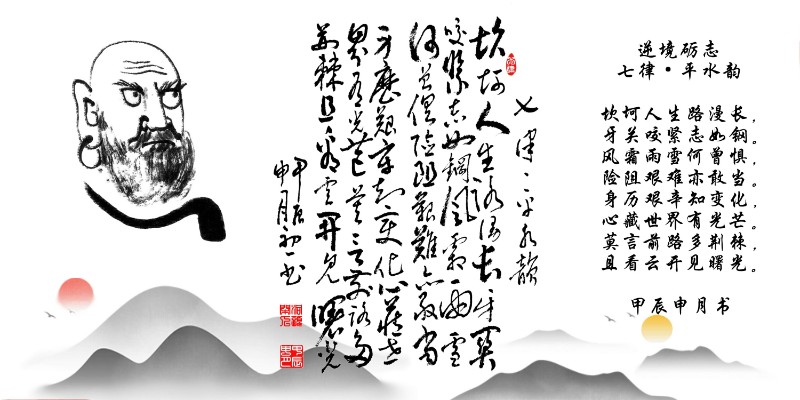 七律·平水韵
坎坷人生路漫长牙关
咬紧志如钢风霜雨雪
何曾惧险阻艰难亦敢当
身历艰辛知变化心藏世
界有光芒莫言前路多
荆棘且看云开见曙光
甲辰
申月初一书
逆境砺志
七律·平水韵
坎坷人生路漫长，
牙关咬紧志如钢。
风霜雨雪何曾惧，
险阻艰难亦敢当。
身历艰辛知变化，
心藏世界有光芒。
莫言前路多荆棘，
且看云开见曙光。
甲辰申月书